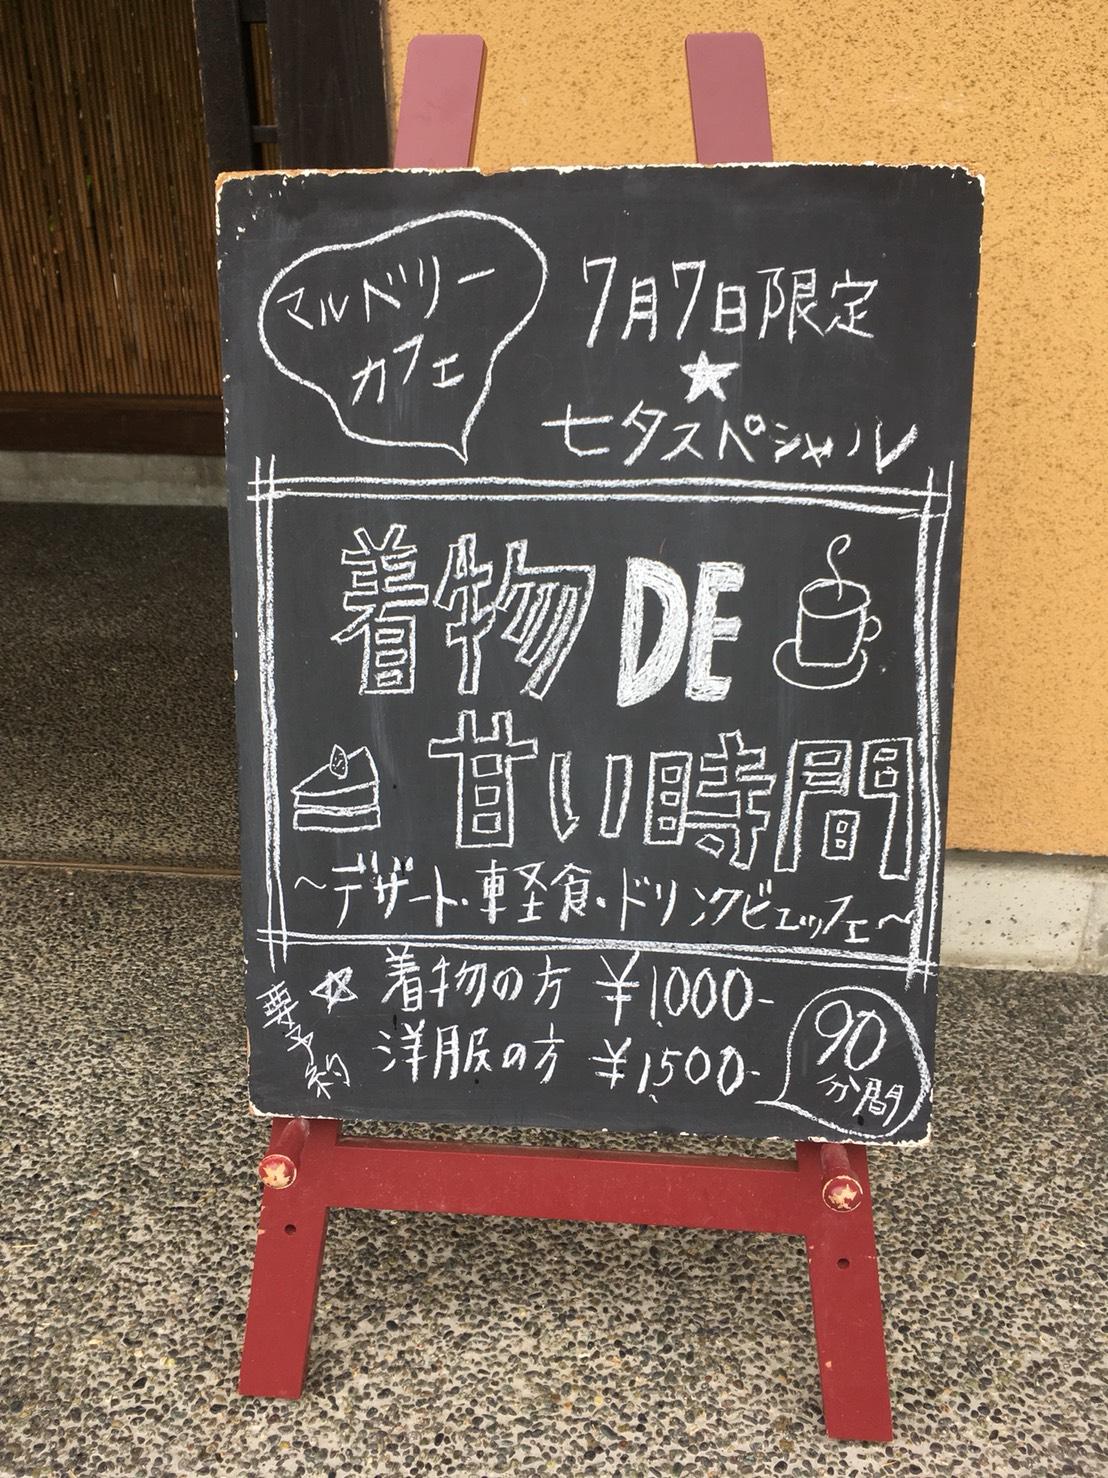 マルベリー
カフェ
7月7日限定
★
七夕スペシャル
着物DE
甘い時間
～デザート・軽食・ドリンクビュッフェ～
要予約
☆着物の方 ¥1,000-
洋服の方 ¥1,500-
90
分間